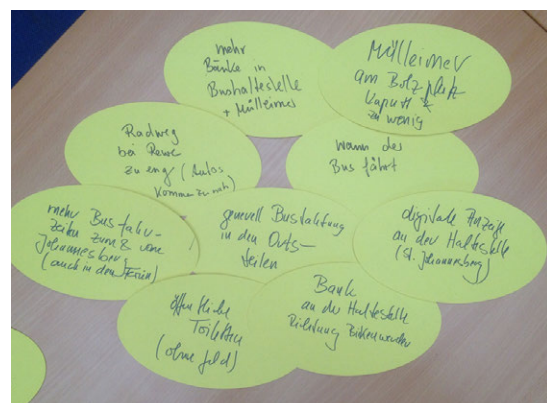 mehr
Bänke in
Bushaltestelle
+ Mülleimer
Mülleimer
am Bolzplatz
kaputt &
zu wenig
Radweg
bei Rewe
zu eng (Autos
kommen zu nah)
wann der
Bus fährt
mehr Busfahr-
zeiten zum & von
Johannesberg
(auch in den Ferien)
generell Bustaktung
in den Orts-
teilen
digitale Anzeige
an der Haltestelle
(St. Johannesberg)
öffentliche
Toiletten
(ohne Geld)
Bank
an der Haltestelle
Richtung Birkenwerder